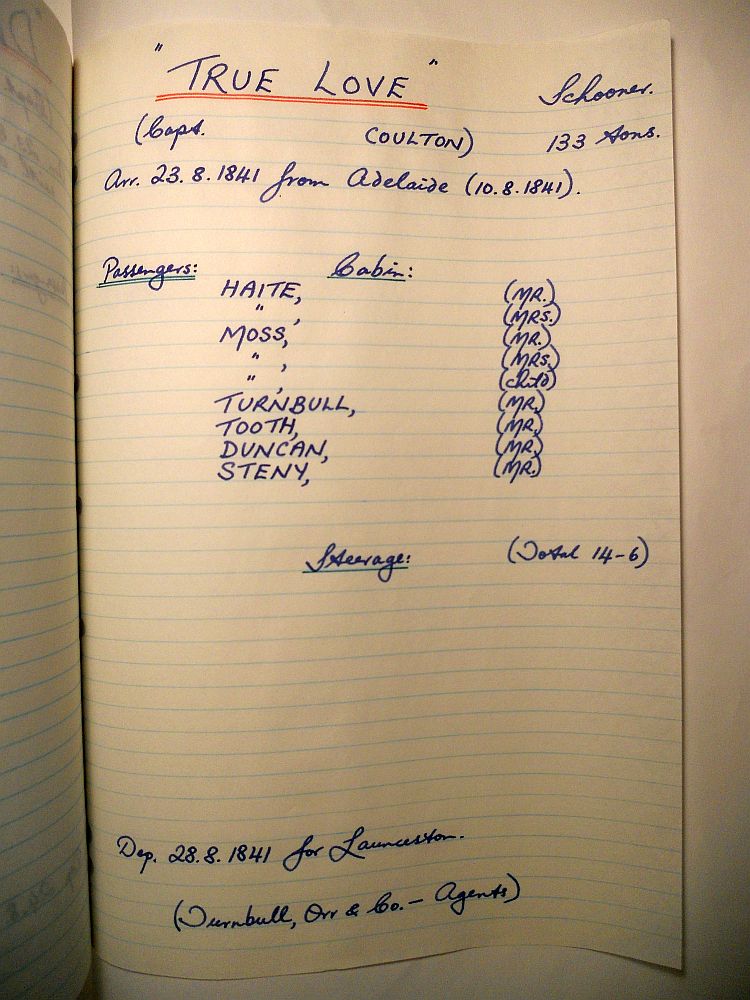 "TRUE LOVE" Schooner.
(Capt. COULTON) 133 tons.
Arr. 23.8.1841 from Adelaide (10.8.1841).
Passengers: Cabin:
HAITE, (MR.)
" , (MRS.)
MOSS, (MR.)
" , (MRS.)
" , (child)
TURNBULL, (MR.)
TOOTH, (MR.)
DUNCAN, (MR.)
STENY, (MR.)
Steerage: (Total 14-6)
Dep. 28.8.1841 for Launceston.
(Turnbull, Orr & Co. - Agents)